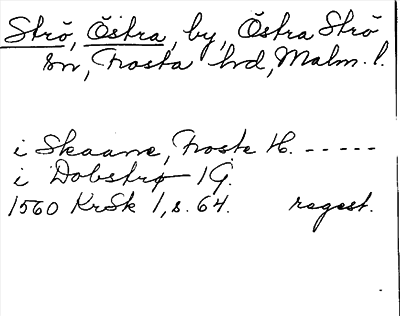 Strö, Östra, by, Östra Strö
sn, Frosta hd, Malm. l.
i Skaane, Froste H. -----
i Dobstrø 1 G.
1560 KrSk 1, s. 64. regest.